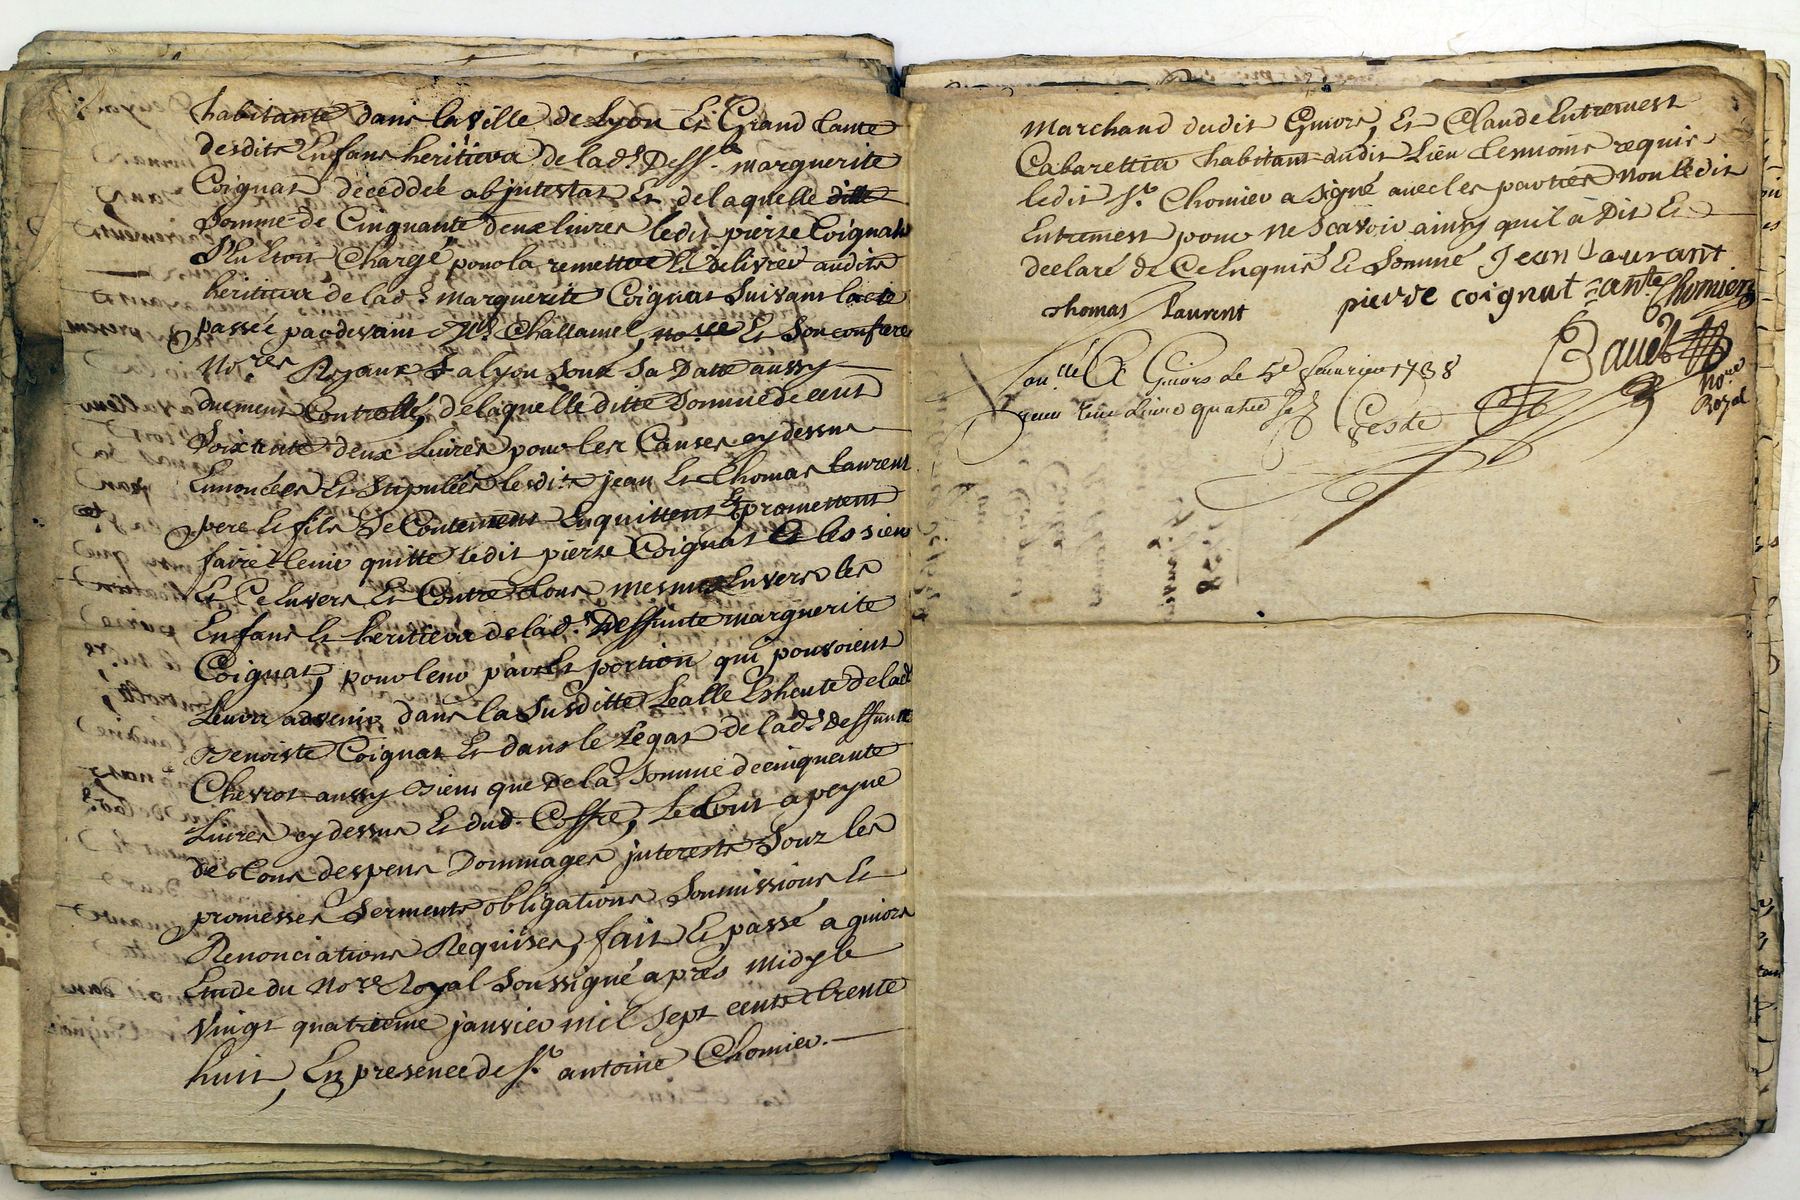 habitante dans la ville de Lyon Et Grand tante
desdits Enfans heritiers de lad.e Deff.te marguerite
Coignat deceddée abjntestat Et de laquelle ditte
Somme de Cinquante deux livres ledit pierre Coignat
S'En Etoit Chargé pour la remettre Et delivrer audits
heritiers de lad.e marguerite Coignat Suivant lacte
passée pardevant M.e Challamel, no.re Et Son confrere
No.res Royaux a lyon Soux Sa Datte aussy
duement Controllé, de laquelle ditte Somme de cent
Soixtante deux Livres pour les Causes cy dessus
Ennoncées Et Stipulées lesdits jean Et Thomas Laurent
pere Et fils Se Contentent En quittent Et promettent
faire tenir quitte ledit pierre Coignat Et les siens
Et Ce Envers Et Contre tous mesmes Envers les
Enfans Et heritiers de lad.e Deffunte marguerite
Coignat, pour leur part Et portion qui pouvoient
Leurs advenir dans la Susditte Salle Eschute de lad.
Benoiste Coignat Et dans le Légat de lad.e deffunte
Chevrot aussy Biens que de la Somme de cinquante
Livres cy dessus Et dud. Coffre, Le tout a peyne
de tous despens Dommages jnterests Souz les
promesses Serments obligations Soumissions Et
Renonciations Requises, fait Et passé a givors
Etude du No.re Royal Soussigné aprés midy le
Vingt quatrieme janvier mil sept cents trente
huit, En presence de S.r antoine Chomier.
Marchand dudit Givors, Et Claude Entremest
Cabarettier habitant audit Lieu Tesmoins requis
ledit S.r Chomier a Signé avec les parties Non ledit
Entremest pour ne Scavoir ainsy qu'il à Dit Et
declaré de Ce Enquis Et Sommé Jean Laurant
thomas laurent pierre coignat ante Chomier
Bauet
No.re
Royal
Con.llé A Givors le 5e feurier 1738
Receu Une Livre quatre s.
Geste